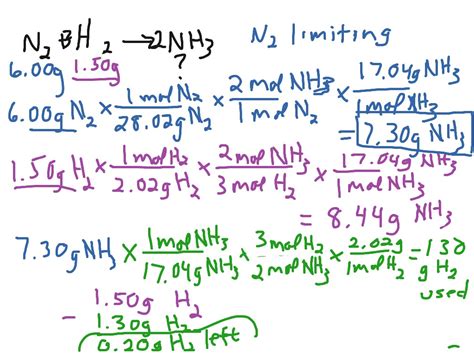 N₂ + 3H₂ → 2NH₃ N₂ limiting
6.00g 1.50g ?
6.00g N₂ × 1 mol N₂ / 28.02g N₂ × 2 mol NH₃ / 1 mol N₂ × 17.04g NH₃ / 1 mol NH₃
= 7.30g NH₃
1.50g H₂ × 1 mol H₂ / 2.02g H₂ × 2 mol NH₃ / 3 mol H₂ × 17.04g NH₃ / 1 mol NH₃
= 8.44g NH₃
7.30g NH₃ × 1 mol NH₃ / 17.04g NH₃ × 3 mol H₂ / 2 mol NH₃ × 2.02g / 1 mol H₂ = 1.30
g H₂
used
1.50g H₂
- 1.30g H₂
0.20g H₂ left